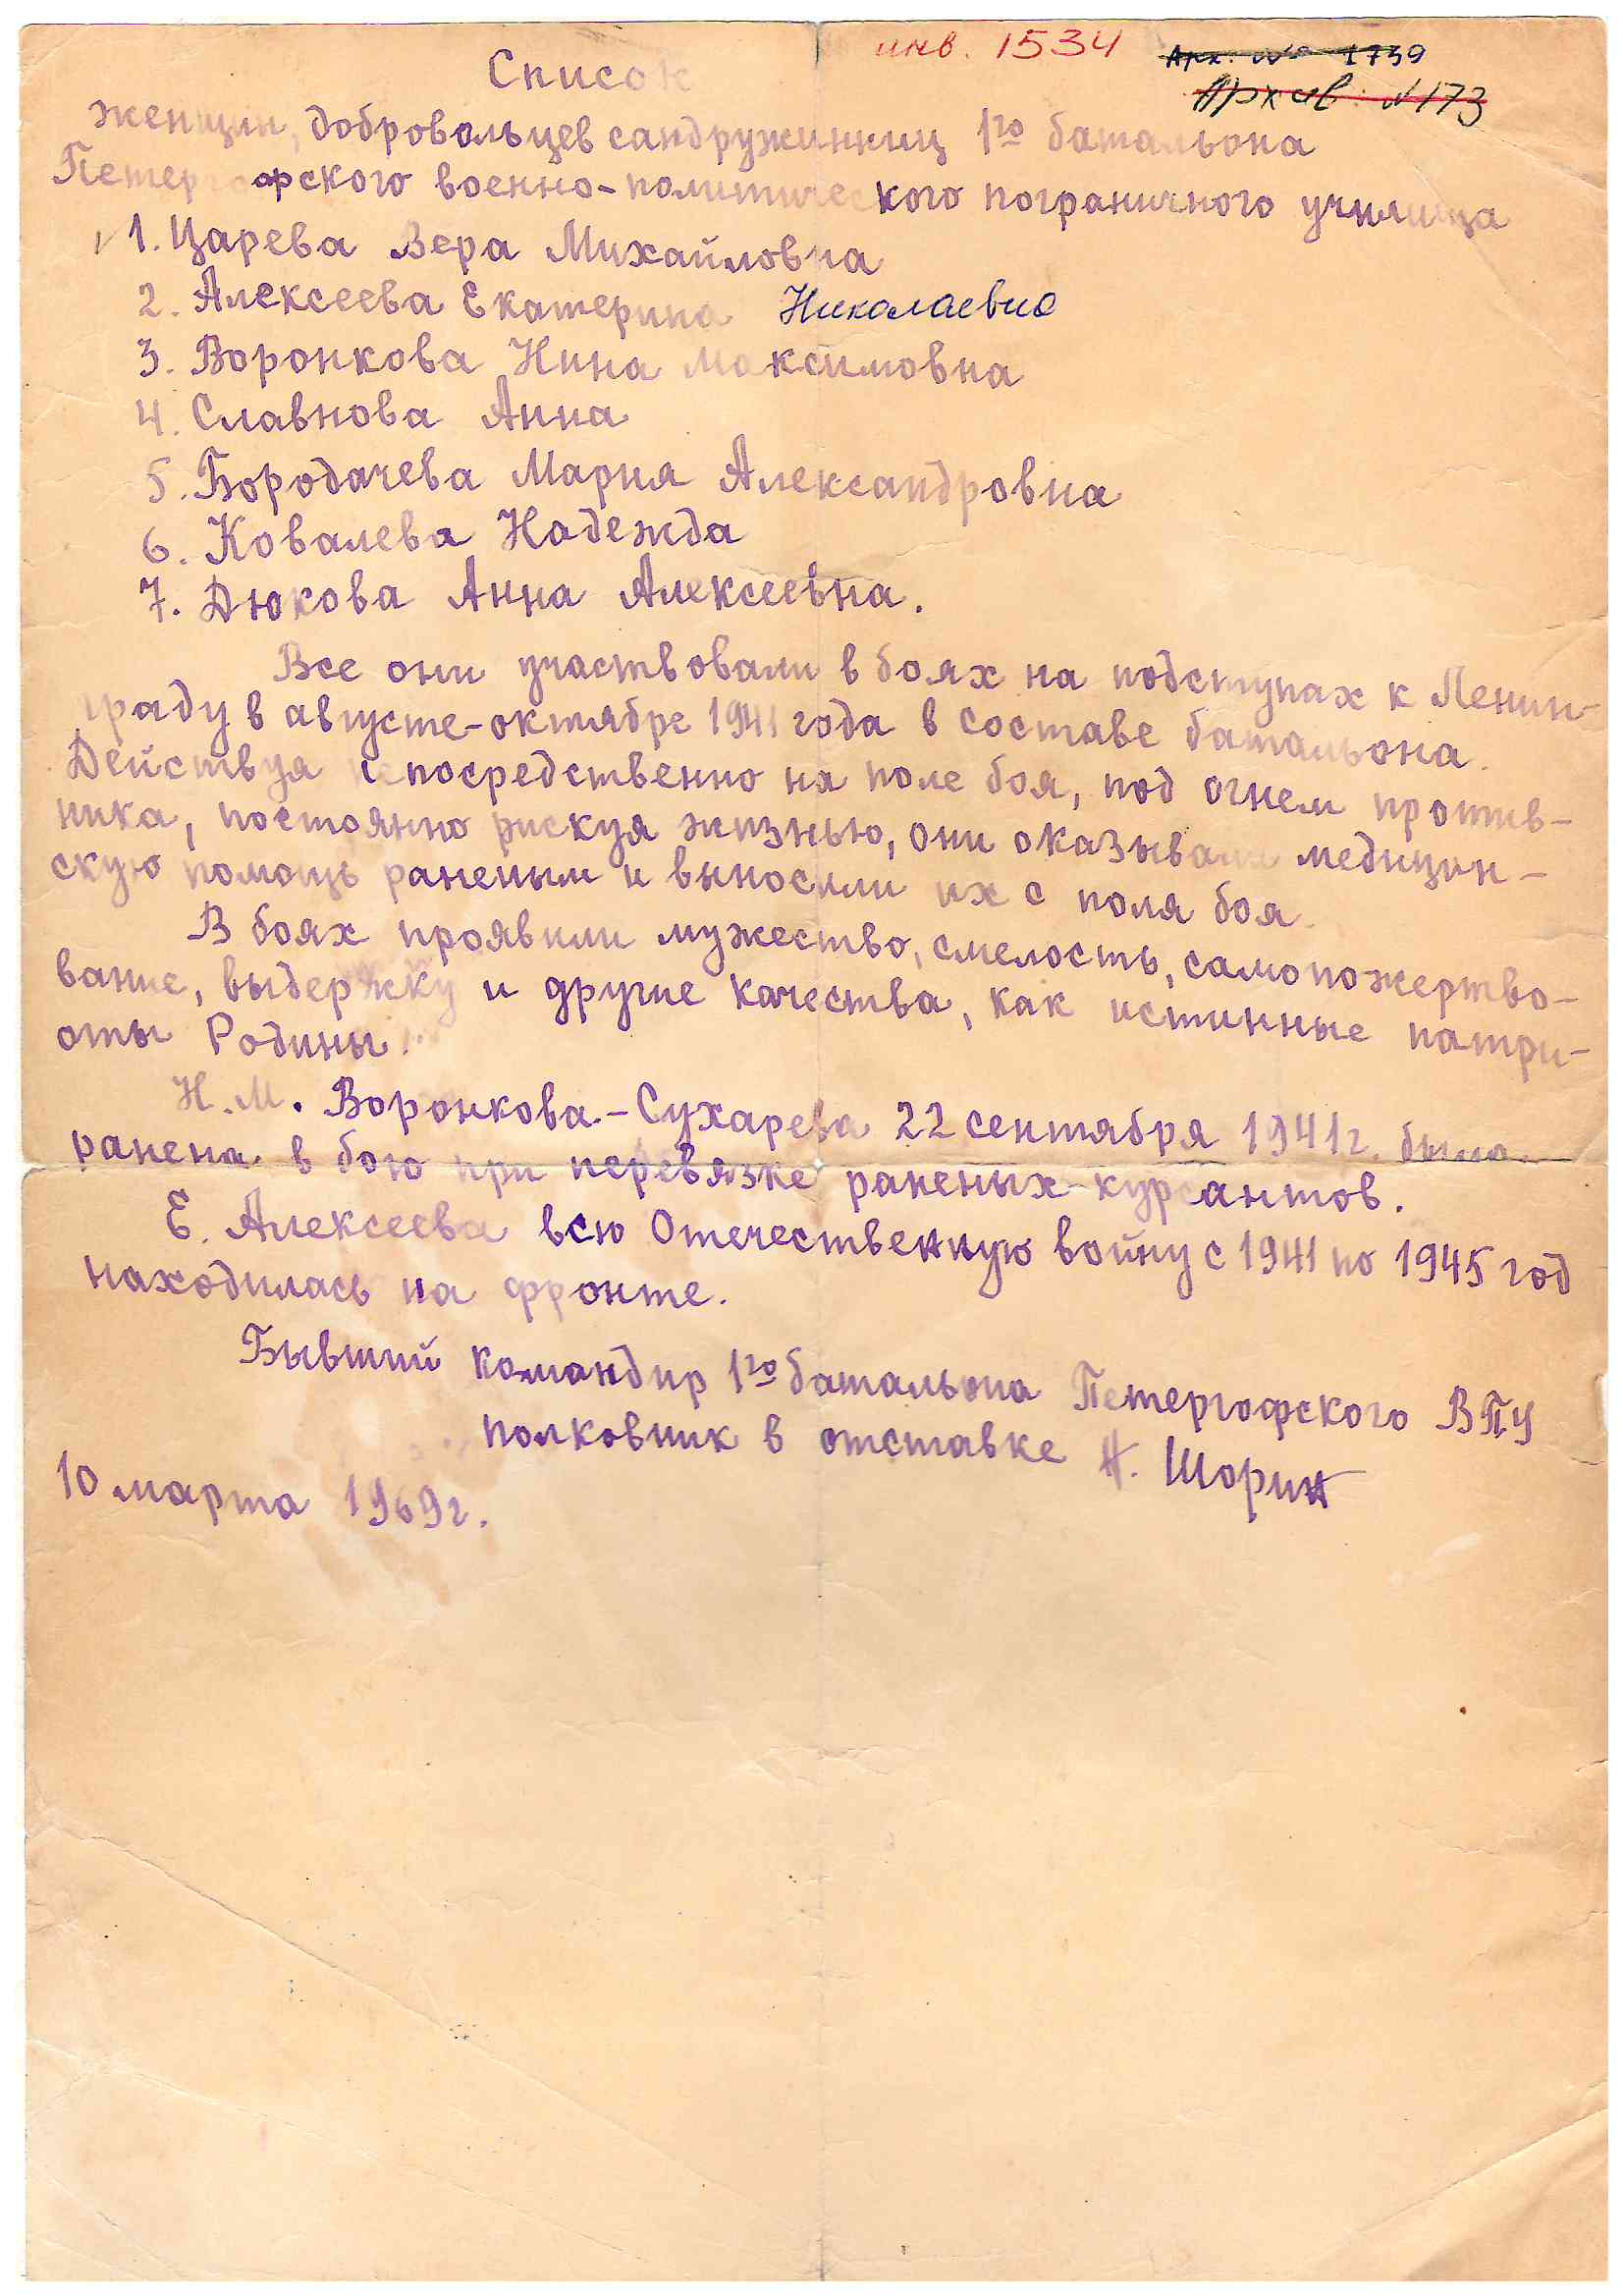 инв. 1534
Арх. № 1739
Архив № 173
Список
женщин, добровольцев сандружинниц 1го батальона
Петергофского военно-политического пограничного училища
1. Царева Вера Михайловна
2. Алексеева Екатерина Николаевна
3. Воронкова Нина Максимовна
4. Славнова Анна
5. Бородачева Мария Александровна
6. Ковалева Надежда
7. Дюкова Анна Алексеевна.
Все они участвовали в боях на подступах к Ленин-
граду в августе-октябре 1941 года в составе батальона.
Действуя непосредственно на поле боя, под огнем против-
ника, постоянно рискуя жизнью, они оказывали медицин-
скую помощь раненым и выносили их с поля боя.
В боях проявили мужество, смелость, самопожертво-
вание, выдержку и другие качества, как истинные патри-
оты Родины.
Н.М. Воронкова-Сухарева 22 сентября 1941г. была
ранена в бою при перевязке раненых курсантов.
Е. Алексеева всю Отечественную войну с 1941 по 1945 год
находилась на фронте.
Бывший командир 1го батальона Петергофского ВПУ
полковник в отставке Н. Шорин
10 марта 1969г.